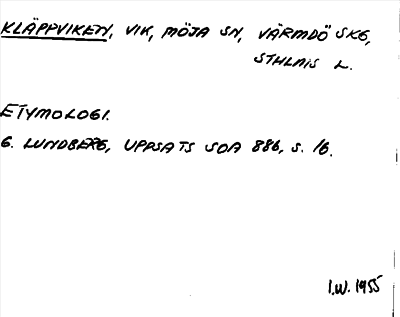 KLÄPPVIKEN, VIK, MÖJA SN, VÄRMDÖ SKG,
STHLMS L.
ETYMOLOGI.
G. LUNDBERG, UPPSATS SOA 886, S. 16.
I.W. 1955